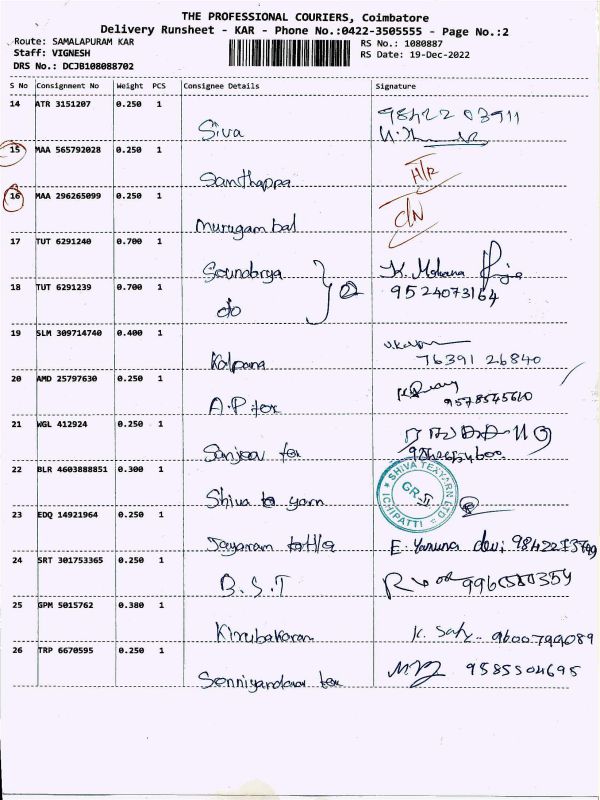 THE PROFESSIONAL COURIERS, Coimbatore
Delivery Runsheet - KAR - Phone No.:0422-3505555 - Page No.:2
Route: SAMALAPURAM KAR RS No.: 1080887
Staff: VIGNESH RS Date: 19-Dec-2022
DRS No.: DCJB108088702
S No Consignment No Weight PCS Consignee Details Signature
14 ATR 3151207 0.250 1
Siva 98422 03911
15 MAA 565792028 0.250 1
Santhappa
16 MAA 296265099 0.250 1
Murugambal
17 TUT 6291240 0.700 1
Soundarya K. Mohana
18 TUT 6291239 0.700 1
do 9524073164
19 SLM 309714740 0.400 1
Kalpana 76391 26840
20 AMD 25797630 0.250 1
A.P tex 9578545610
21 WGL 412924 0.250 1
Sanjeev tex
22 BLR 4603888851 0.300 1
SHIVA TEXYARN LTD
GR-II
ICHIPATTI
Shiva yarn
23 EDQ 14921964 0.250 1
Jayaram E. Yamuna devi
24 SRT 301753365 0.250 1
B.S.T
25 GPM 5015762 0.380 1
Kirubakaran 9600799089
26 TRP 6670595 0.250 1
Senniyandavar tex 9585504695